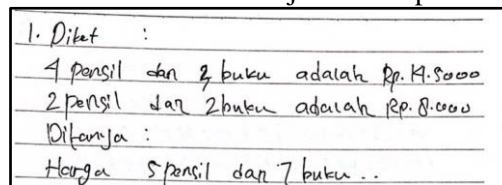 1. Diket :
4 pensil dan 3 buku adalah Rp. 14.5000
2 pensil dan 2 buku adalah Rp. 8.000
Ditanya :
Harga 5 pensil dan 7 buku ..